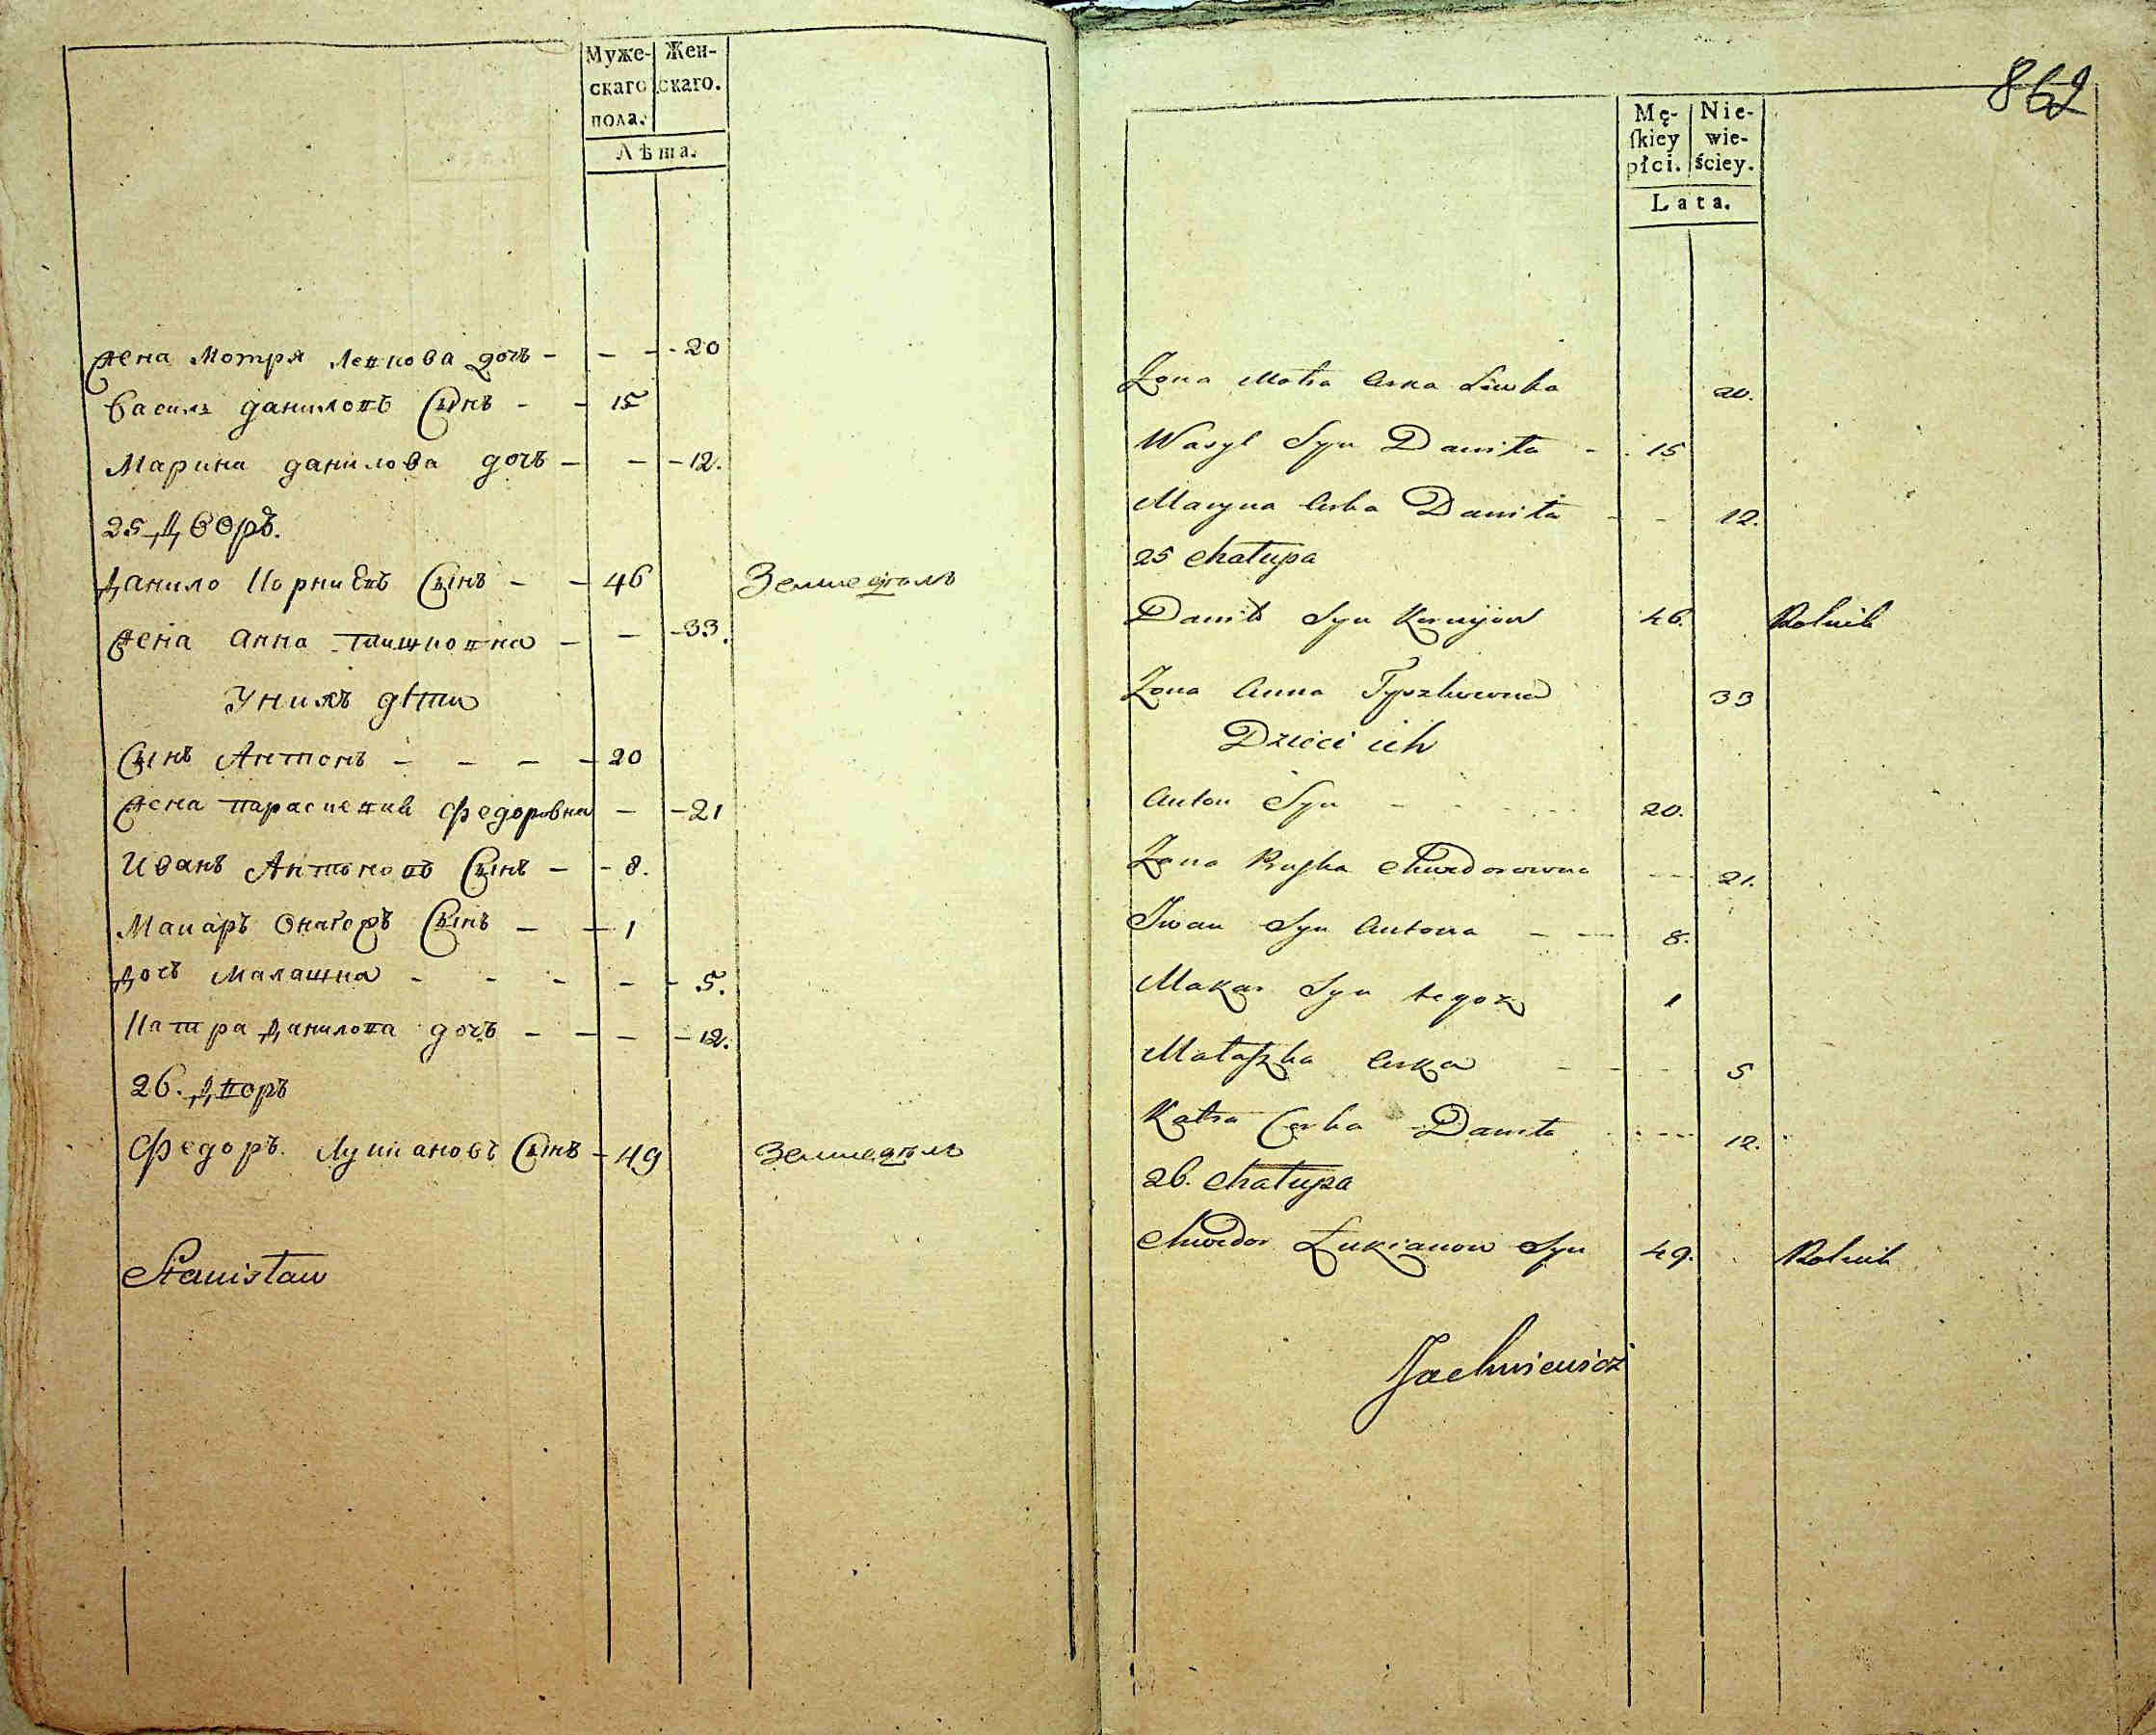 Муже- Жен-
скаго скаго.
пола.
Лѣта.
Жена Мотря Левкова дочь - - - - 20
Василь данилове Сынъ - - 15
Марина данилова дочь - - - 12.
25 Дворъ.
Данило Корниевъ Сынъ - - 46 Земледѣлъ
Жена Анна Тишковна - - - 33.
У нихъ дѣти
Сынъ Антонъ - - - - 20
Жена Парасцевия Федоровна - - 21
Иванъ Антоновъ Сынъ - - 8.
Макаръ Сынъ - - 1
Дочь Малашка - - - - - 5.
Катра Данилова дочь - - - - 12.
26. Дворъ
Федоръ Лукиановъ Сынъ - 49 Земледѣлъ
Stanisław
862
Mę- Nie-
ſkiey wie-
płci. ściey.
Lata.
Żona Motra Curka Lewka 20.
Wasyl Syn Daniła - 15
Maryna Curka Daniła - - 12.
25 Chałupa
Daniło Syn Kornijów 46. Rolnik
Żona Anna Tyszkowna 33
Dzieci ich
Anton Syn - - - - - 20.
Żona Chwedorowna - - - 21.
Iwan Syn Antona - - - 8.
Makar Syn tegoż 1
Małaszka Curka - - - - 5
Katra Curka Daniła - - - - 12.
26. Chałupa
Chwedor Łukianow Syn 49. Rolnik
Jachniewicz